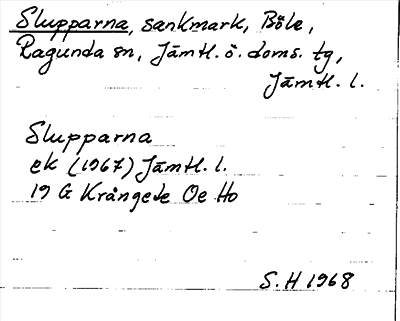 Slupparna, sankmark, Böle,
Ragunda sn, Jämtl. ö. doms. tg,
Jämtl. l.
Slupparna
ek (1967) Jämtl. l.
19 G Krångede Oe Ho
S. H 1968